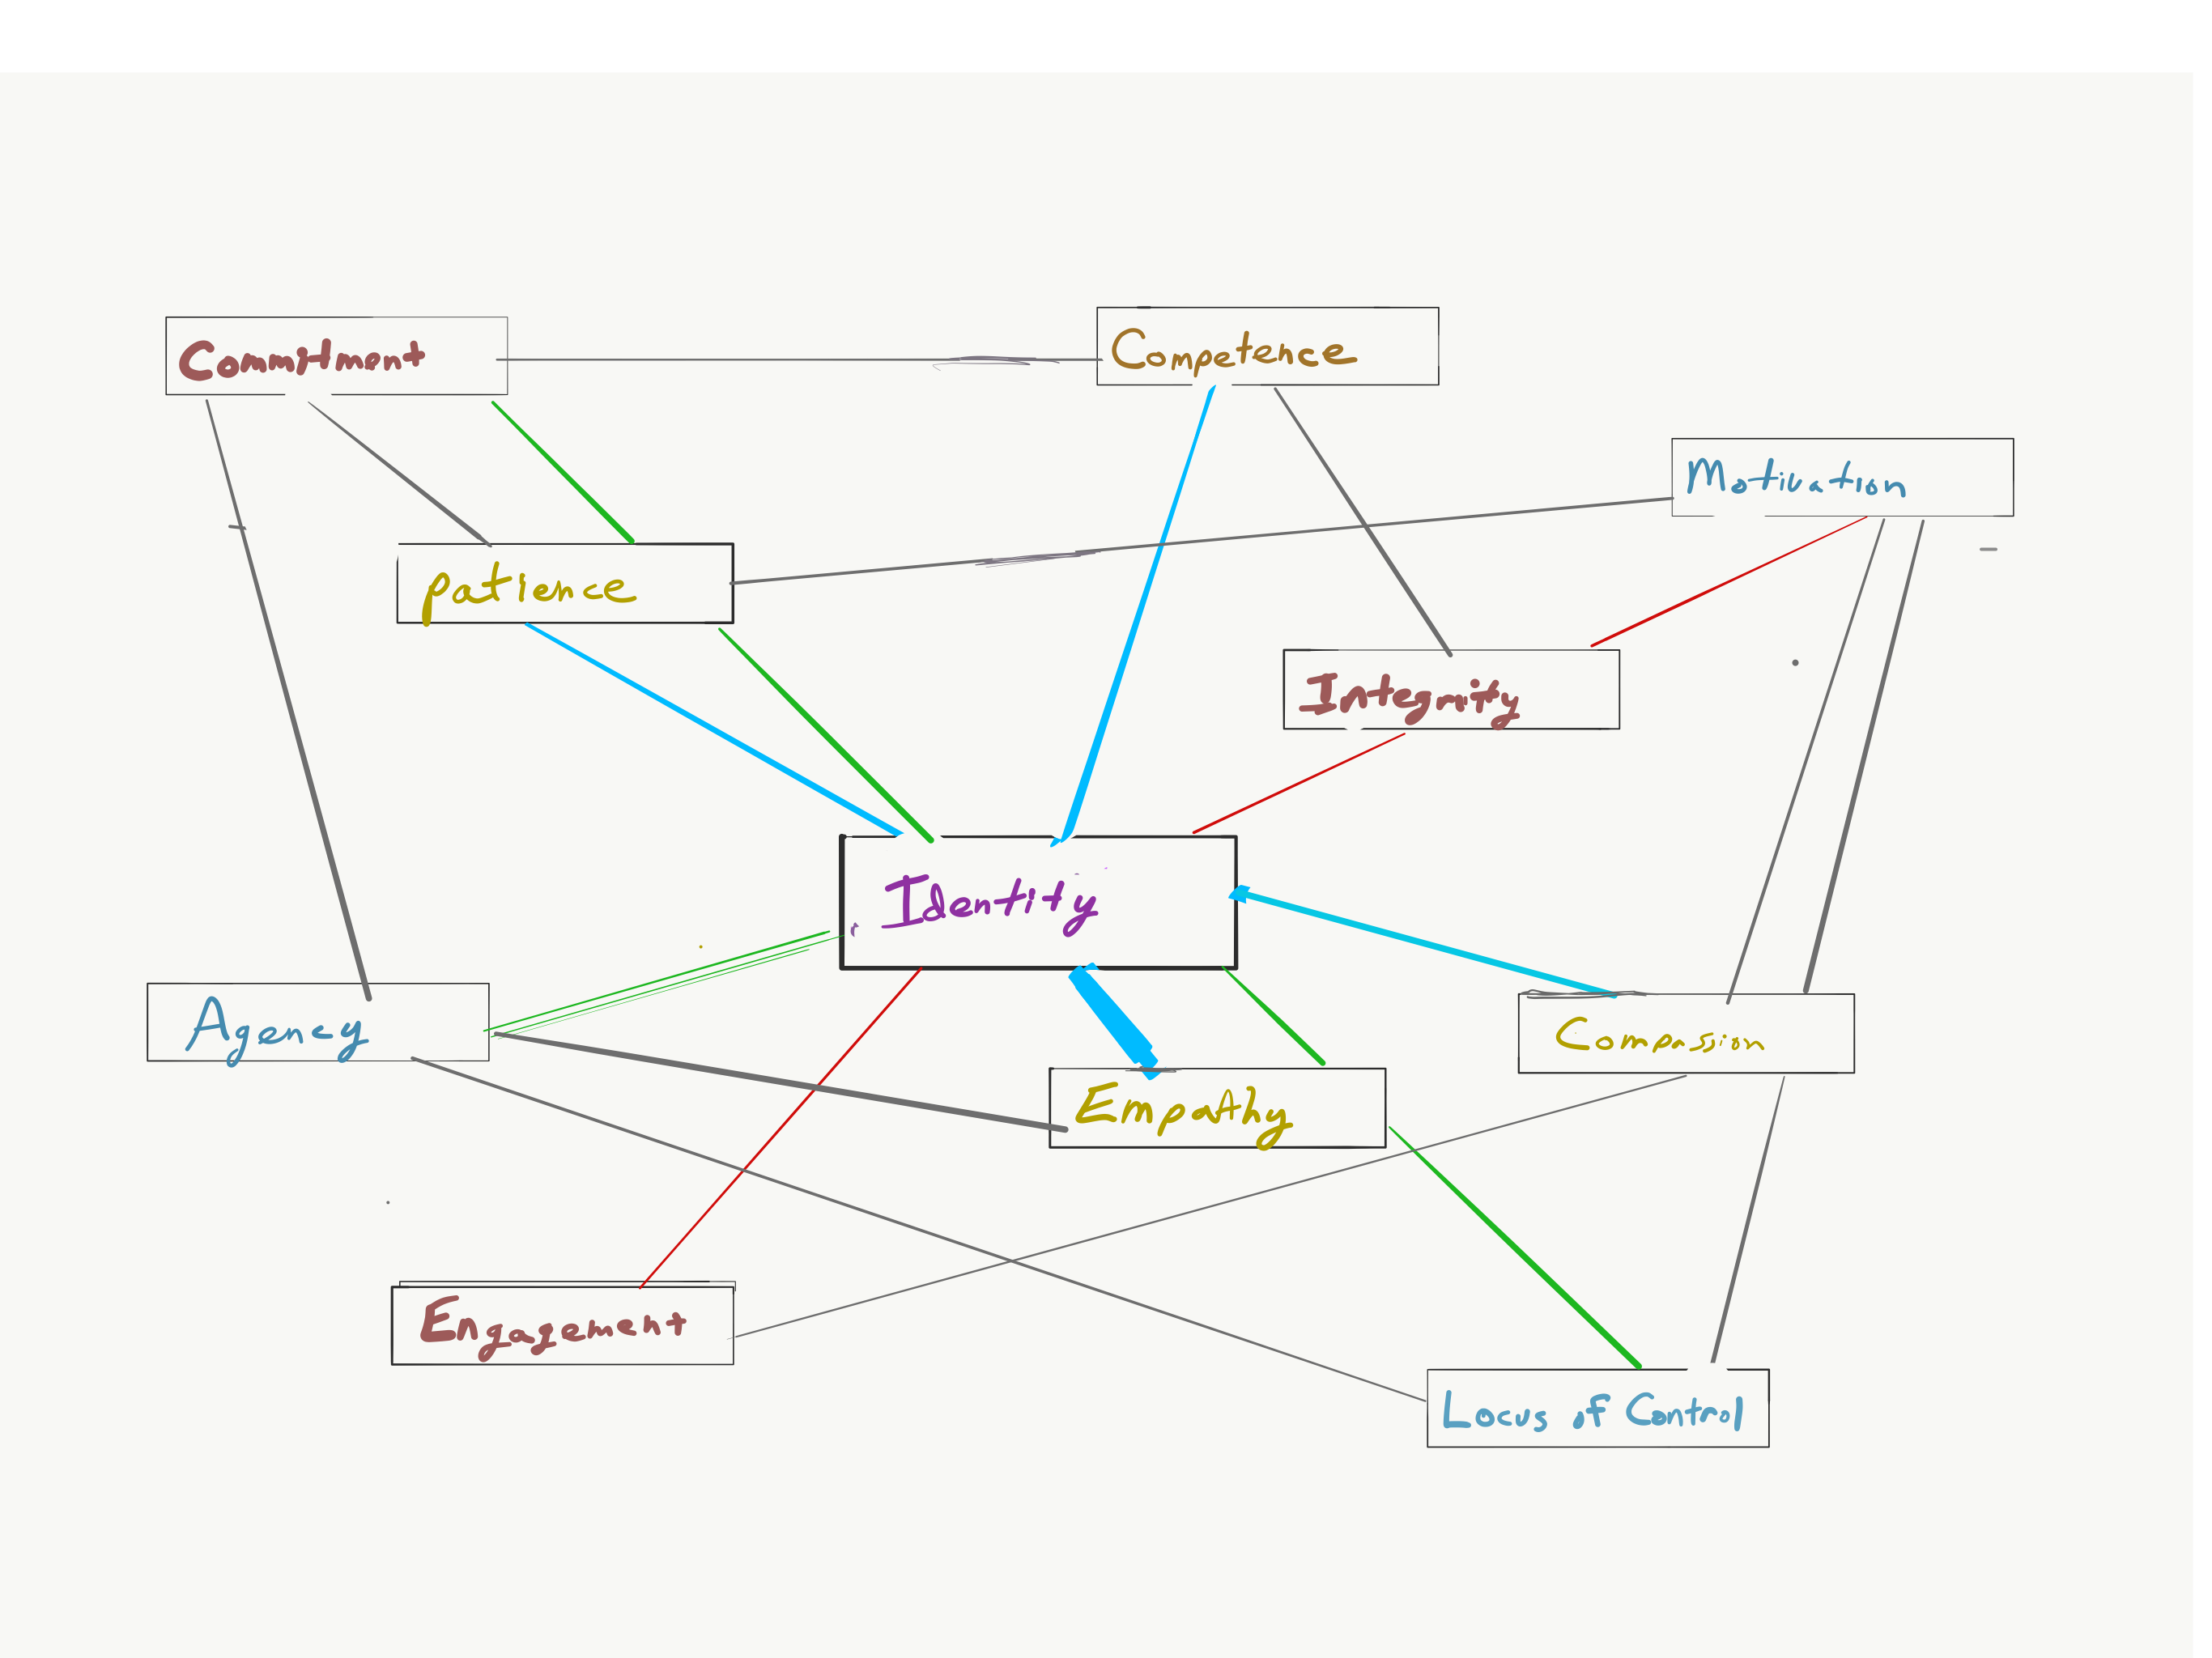 Commitment
Competence
Motivation
patience
Integrity
Identity
Agency
Compassion
Empathy
Engagement
Locus of Control